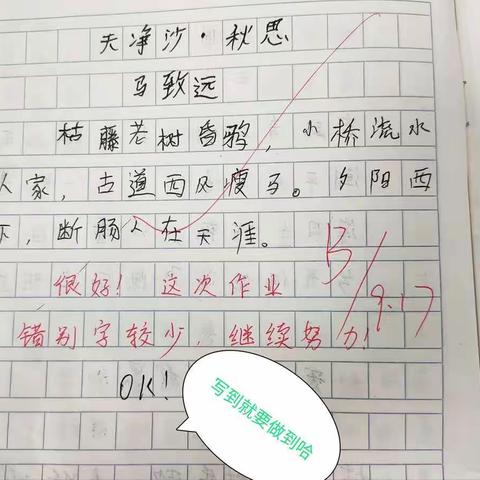 天净沙·秋思
马致远
枯藤老树昏鸦，小桥流水
人家，古道西风瘦马。夕阳西
下，断肠人在天涯。
很好！这次作业
错别字较少，继续努力！
9.17
OK！
写到就要做到哈